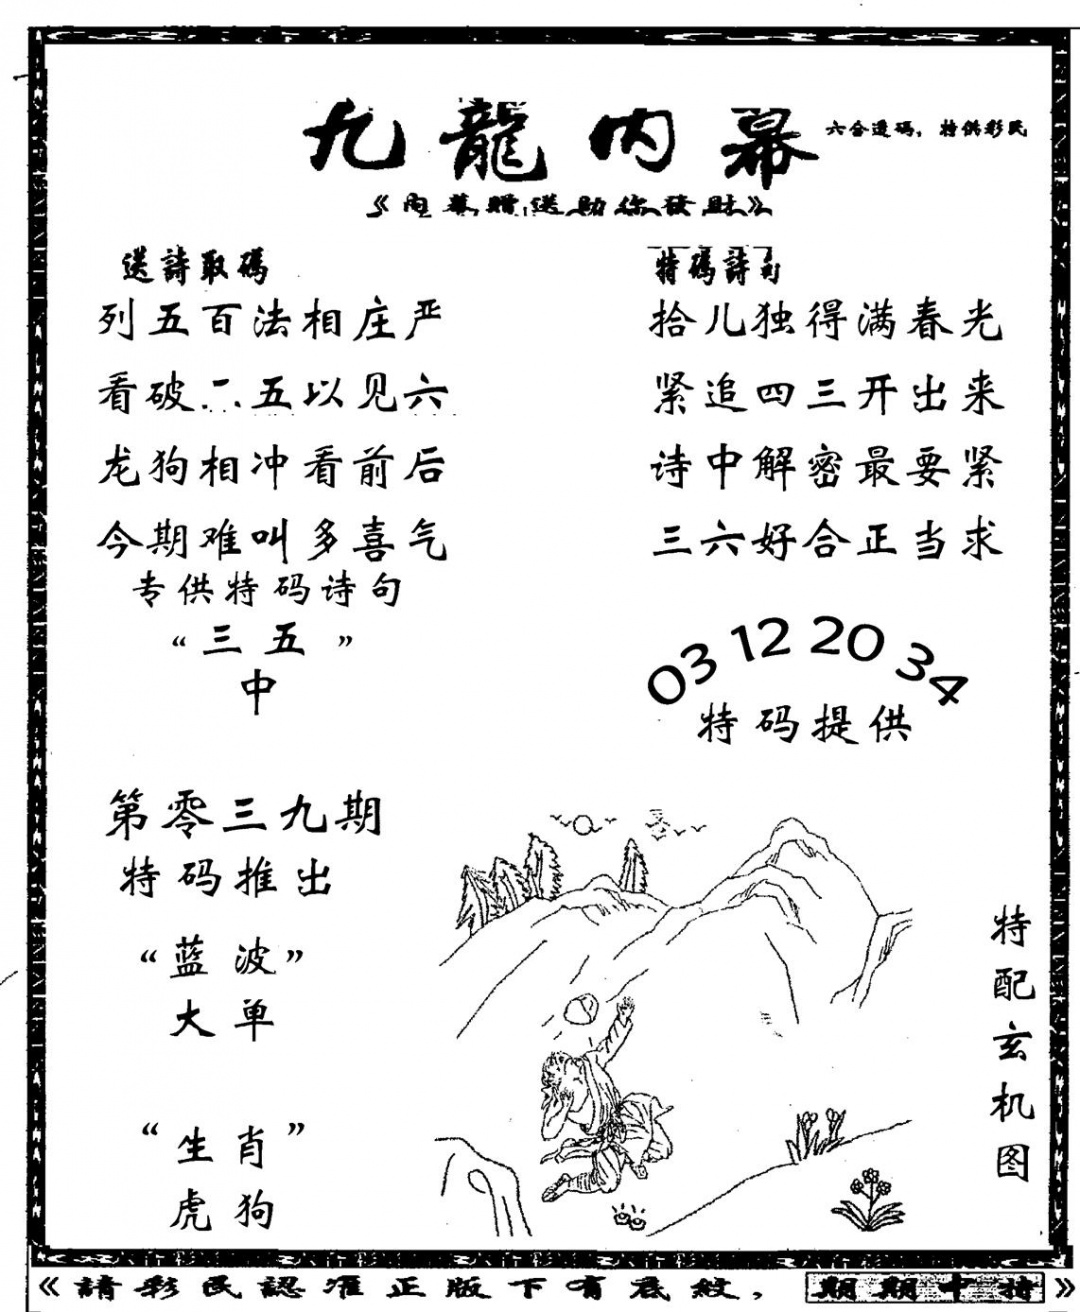 九龍内幕
六合透码，特供彩民
《内幕赠送助你發财》
送詩取碼
列五百法相庄严
看破二五以见六
龙狗相冲看前后
今期难叫多喜气
专供特码诗句
“三五”
中
特碼詩句
拾儿独得满春光
紧追四三开出来
诗中解密最要紧
三六好合正当求
03 12 20 34
特码提供
第零三九期
特码推出
“蓝波”
大单
“生肖”
虎狗
特配玄机图
《請彩民認准正版下有底紋，期期中特》